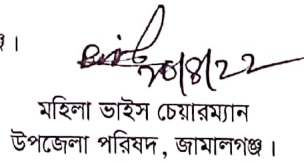 ।
28/8/22
মহিলা ভাইস চেয়ারম্যান
উপজেলা পরিষদ, জামালগঞ্জ।